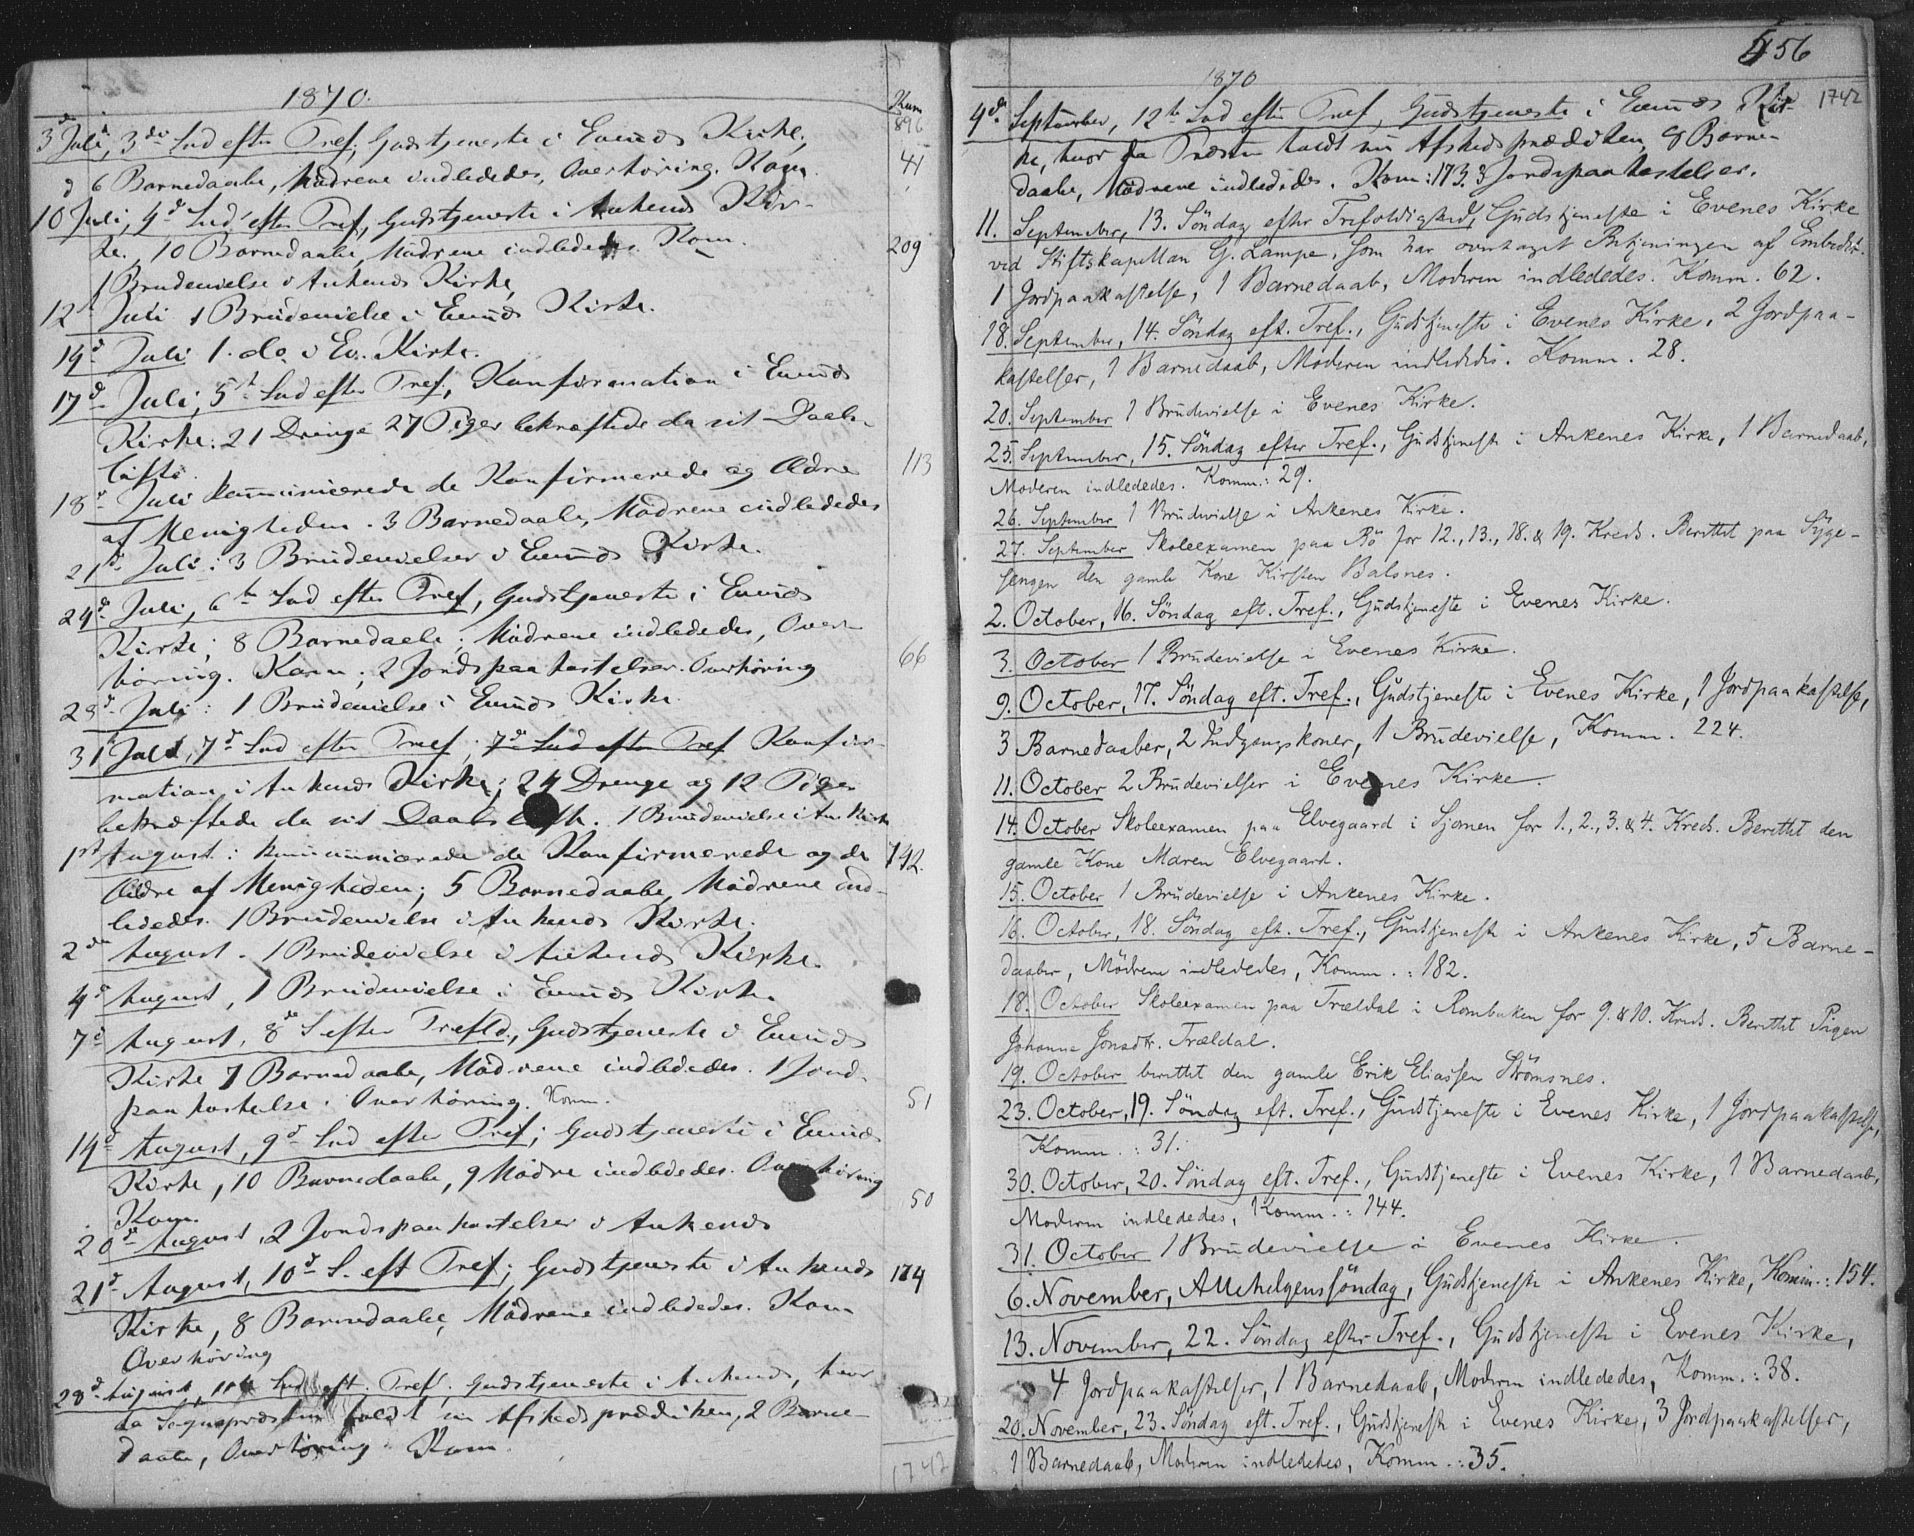 1870.
Kom
896
3d Juli, 3die Snd efter Tref, Gudstjeneste i Evenes Kirke,
6 Barnedaabe, Mødrene indlededes, Overhøring. Kom. 41
10 Juli, 4d Snd efter Tref, Gudstjeneste i Ankenes Kir-
ke, 10 Barnedaabe, Mødrene indlededes. Kom. 209
1 Brudevielse i Ankenes Kirke,
12t Juli 1 Brudevielse i Evenes Kirke.
14d Juli 1. do. i Ev. Kirke.
17d Juli, 5t Snd efter Tref, Konfirmation i Evenes
Kirke: 21 Drenge 27 Piger bekræftede da sit Daabs-
løfte.
18d Juli kommunicerede de Konfirmerede og Ældre 113
af Menigheden. 3 Barnedaabe, Mødrene indlededes
21d Juli: 3 Brudevielser i Evenes Kirke.
24d Juli, 6te Snd efter Tref, Gudstjeneste i Evenes
Kirke; 8 Barnedaabe; Mødrene indlededes, Over-
høring. Kom; 2 Jordspaakastelser. Overhøring 66
28d Juli: 1 Brudevielse i Evenes Kirke
31t Juli, 7d Snd efter Tref, 7de Snd efter Tref Konfir-
mation i Ankenes Kirke; 24 Drenge og 12 Piger
bekræftede da sit Daabsløfte. 1 Brudevielse i Ank Kirke
1st August: kommunicerede de Konfirmerede og de 142.
Ældre af Menigheden; 5 Barnedaabe, Mødrene ind-
lededes. 1 Brudevielse i Ankenes Kirke.
2den August. 1 Brudevielse i Ankenes Kirke.
4d August, 1 Brudevielse i Evenes Kirke.
7d August, 8d S. efter Trefld., Gudstjeneste i Evenes
Kirke 7 Barnedaabe, Mødrene indlededes. 1 Jord-
paakastelse. Overhøring. Komm. 51
14d August, 9d Snd efter Tref; Gudstjeneste i Evenes
Kirke, 10 Barnedaabe, 9 Mødre indlededes. Overhøring
Kom. 50
20d August, 2 Jordspaakastelser i Ankenes
21d August, 10d S. eft Tref; Gudstjeneste i Ankenes 174
Kirke, 8 Barnedaabe, Mødrene indlededes. Kom
Overhøring
28d August, 11te Snd eft. Tref. Gudstjeneste i Ankenes, hvor
da Sognepræsten holdt sin Afskedsprædiken, 2 Barne-
daabe, Overhøring Kom.
1742
456
1870
1742
4de September, 12te Snd efter Tref, Gudstjeneste i Evenes Kir-
ke, hvor da Præsten holdt sin Afskedsprædiken, 9 Barne-
daabe, Mødrene indlededes. Kom: 173. 3 Jordspaakastelser.
11. September, 13. Söndag efter Trefoldighed, Gudstjeneste i Evenes Kirke
ved Stiftskapellan G. Lampe, som har overtaget Betjeningen af Embedet.
1 Jordpaakastelse, 1 Barnedaab, Moderen indlededes. Komm. 62.
18. September, 14. Söndag eft. Tref., Gudstjeneste i Evenes Kirke, 2 Jordpaa-
kastelser, 1 Barnedaab, Moderen indlededes. Komm. 28.
20. September 1 Brudevielse i Evenes Kirke.
25. September, 15. Söndag efter Tref., Gudstjeneste i Ankenes Kirke, 1 Barnedaab,
Moderen indlededes. Komm.: 29.
26. September 1 Brudevielse i Ankenes Kirke.
27. September Skoleexamen paa Bö for 12., 13., 18. & 19. Kreds. Berettet paa Syge-
sengen den gamle Kone Kirsten Balsnes.
2. October, 16. Söndag eft. Tref., Gudstjeneste i Evenes Kirke.
3. October 1 Brudevielse i Evenes Kirke.
9. October, 17. Söndag eft. Tref., Gudstjeneste i Evenes Kirke, 1 Jordpaakastelse,
3 Barnedaaber, 2 Indgangskoner, 1 Brudevielse, Komm. 224.
11. October 2 Brudevielser i Evenes Kirke.
14. October Skoleexamen paa Elvegaard i Sjomen for 1., 2., 3. & 4. Kreds. Berettet den
gamle Kone Maren Elvegaard.
15. October 1 Brudevielse i Ankenes Kirke.
16. October, 18. Söndag eft. Tref., Gudstjeneste i Ankenes Kirke, 5 Barne-
daaber, Mödrene indlededes, Komm.: 182.
18. October Skoleexamen paa Trældal i Rombaken for 9. & 10. Kreds. Berettet Pigen
Johanna Jonsdtr. Trældal.
19. October berettet den gamle Erik Eliassen Strömsnes.
23. October, 19. Söndag eft. Tref., Gudstjeneste i Evenes Kirke, 1 Jordpaakastelse,
Komm.: 31.
30. October, 20. Söndag eft. Tref., Gudstjeneste i Evenes Kirke, 1 Barnedaab,
Moderen indlededes, Komm.: 144.
31. October 1 Brudevielse i Evenes Kirke.
6. November, Allehelgenssöndag, Gudstjeneste i Ankenes Kirke, Komm.: 154.
13. November, 22. Söndag efter Tref., Gudstjeneste i Evenes Kirke,
4 Jordpaakastelser, 1 Barnedaab, Moderen indlededes, Komm.: 38.
20. November, 23. Söndag eft. Tref., Gudstjeneste i Evenes Kirke, 3 Jordpaakastelser,
1 Barnedaab, Moderen indlededes, Komm.: 35.